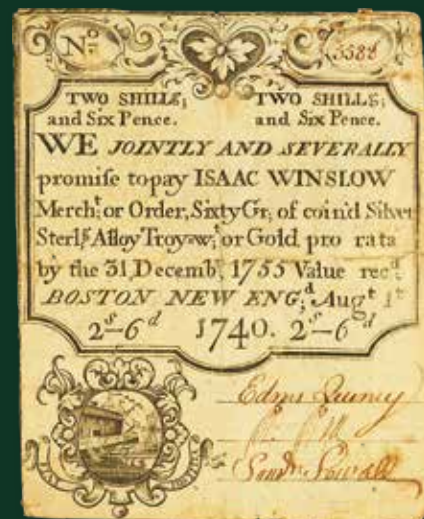 No. 5588
TWO SHILLs; TWO SHILLs;
and Six Pence. and Six Pence.
WE JOINTLY AND SEVERALLY
promiſe to pay ISAAC WINSLOW
Mercht. or Order, Sixty Gr; of coin'd Silver
Sterls Alloy Troy-wt; or Gold pro rata
by the 31, Decemb, 1755 Value recd.
BOSTON NEW ENG;d Augt 1t
2s-6d 1740. 2s-6d
Edm Quincy
Saml Sewall